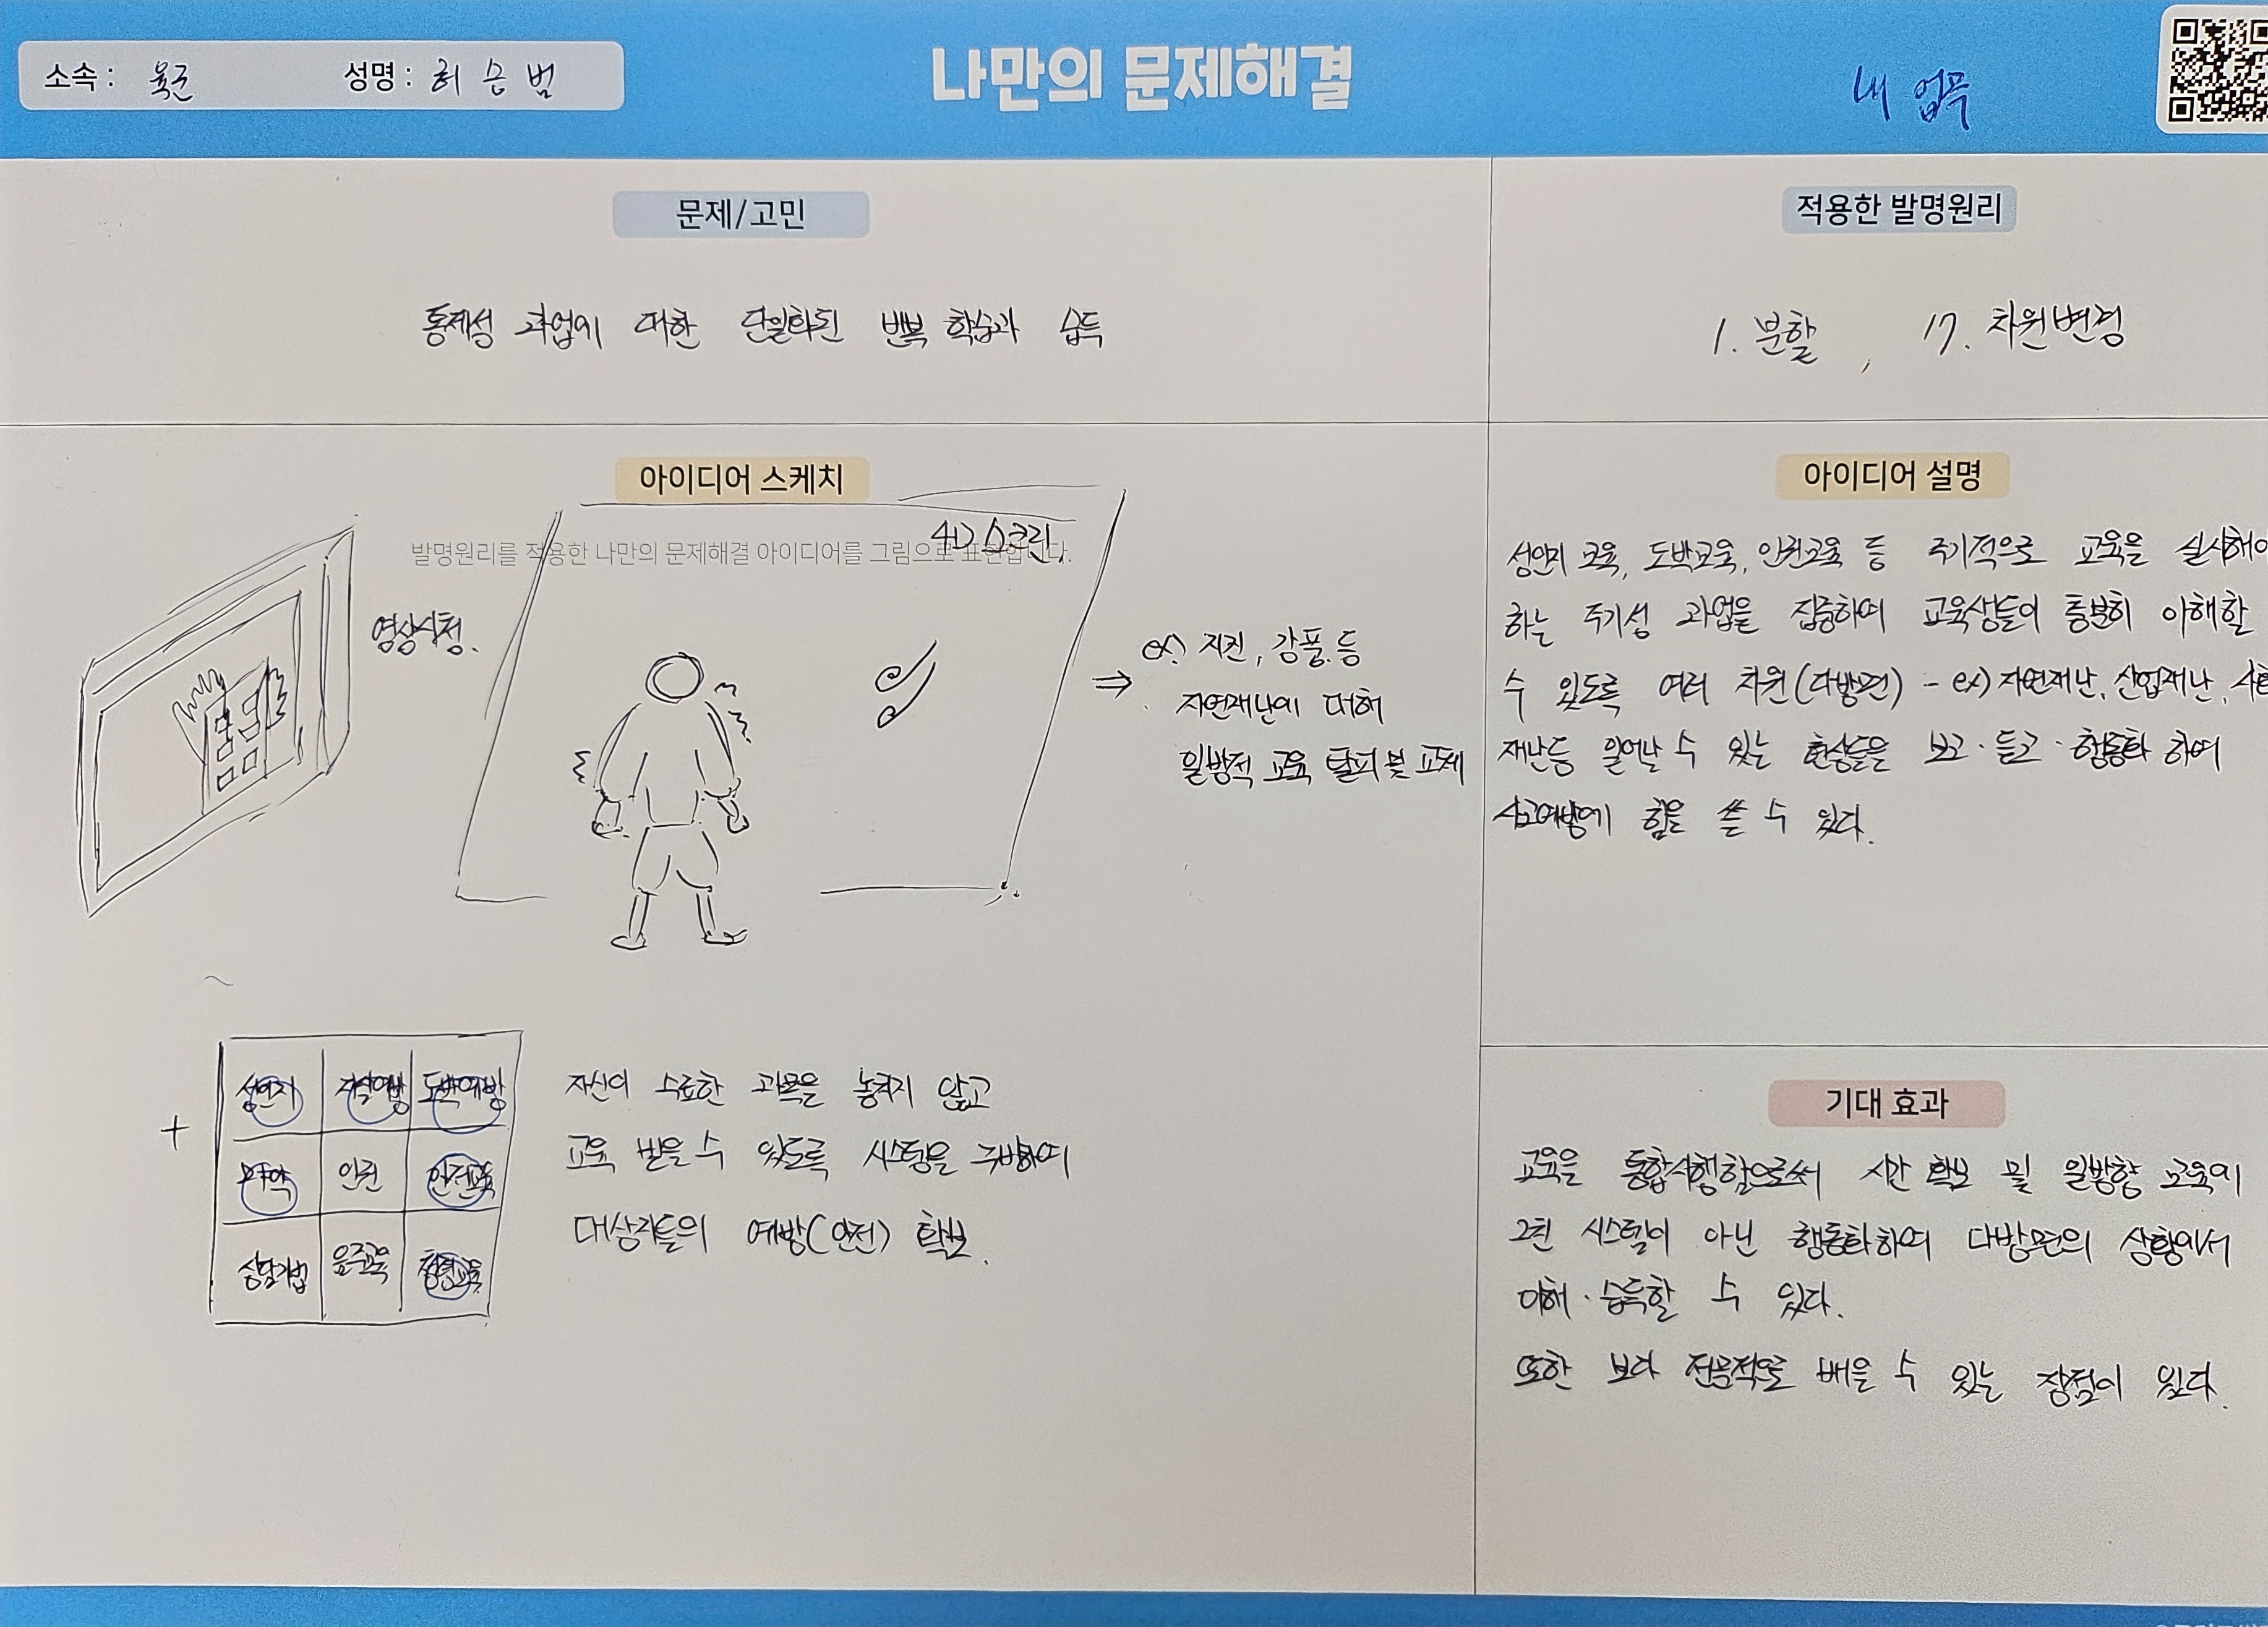 소속 : 육군
성명 : 허승범
나만의 문제해결
내 업무
문제/고민
통제성 과업에 대한 단일화된 반복 학습과 습득
적용한 발명원리
1. 분할, 17. 차원변경
아이디어 스케치
발명원리를 적용한 나만의 문제해결 아이디어를 그림으로 표현합니다.
4D 스크린
영상시청.
⇒ ex) 지진, 강풍 등
자연재난에 대해
일방적 교육 탈피 및
+
성인지 자살예방 도박예방
마약 인권 안전교육
상담기법 음주교육 청렴교육
자신이 수료한 과목을 놓치지 않고
교육 받을 수 있도록 시스템을 구방하여
대상자들의 예방(안전) 확보.
아이디어 설명
성인지 교육, 도박교육, 인권교육 등 주기적으로 교육을 실시해야
하는 주기성 과업을 집중하여 교육생들이 충분히 이해할
수 있도록 여러 차원(다방면) - ex) 자연재난, 산업재난,
재난등 일어날 수 있는 현상들을 보고·듣고·행동화 하여
사고예방에 힘을 쓸 수 있다.
기대 효과
교육을 통합시행함으로써 시간 확보 및 일방향 교육에
그친 시스템이 아닌 행동화하여 다방면의 상황에서
이해·습득할 수 있다.
또한 보다 전문적으로 배울 수 있는 장점이 있다.